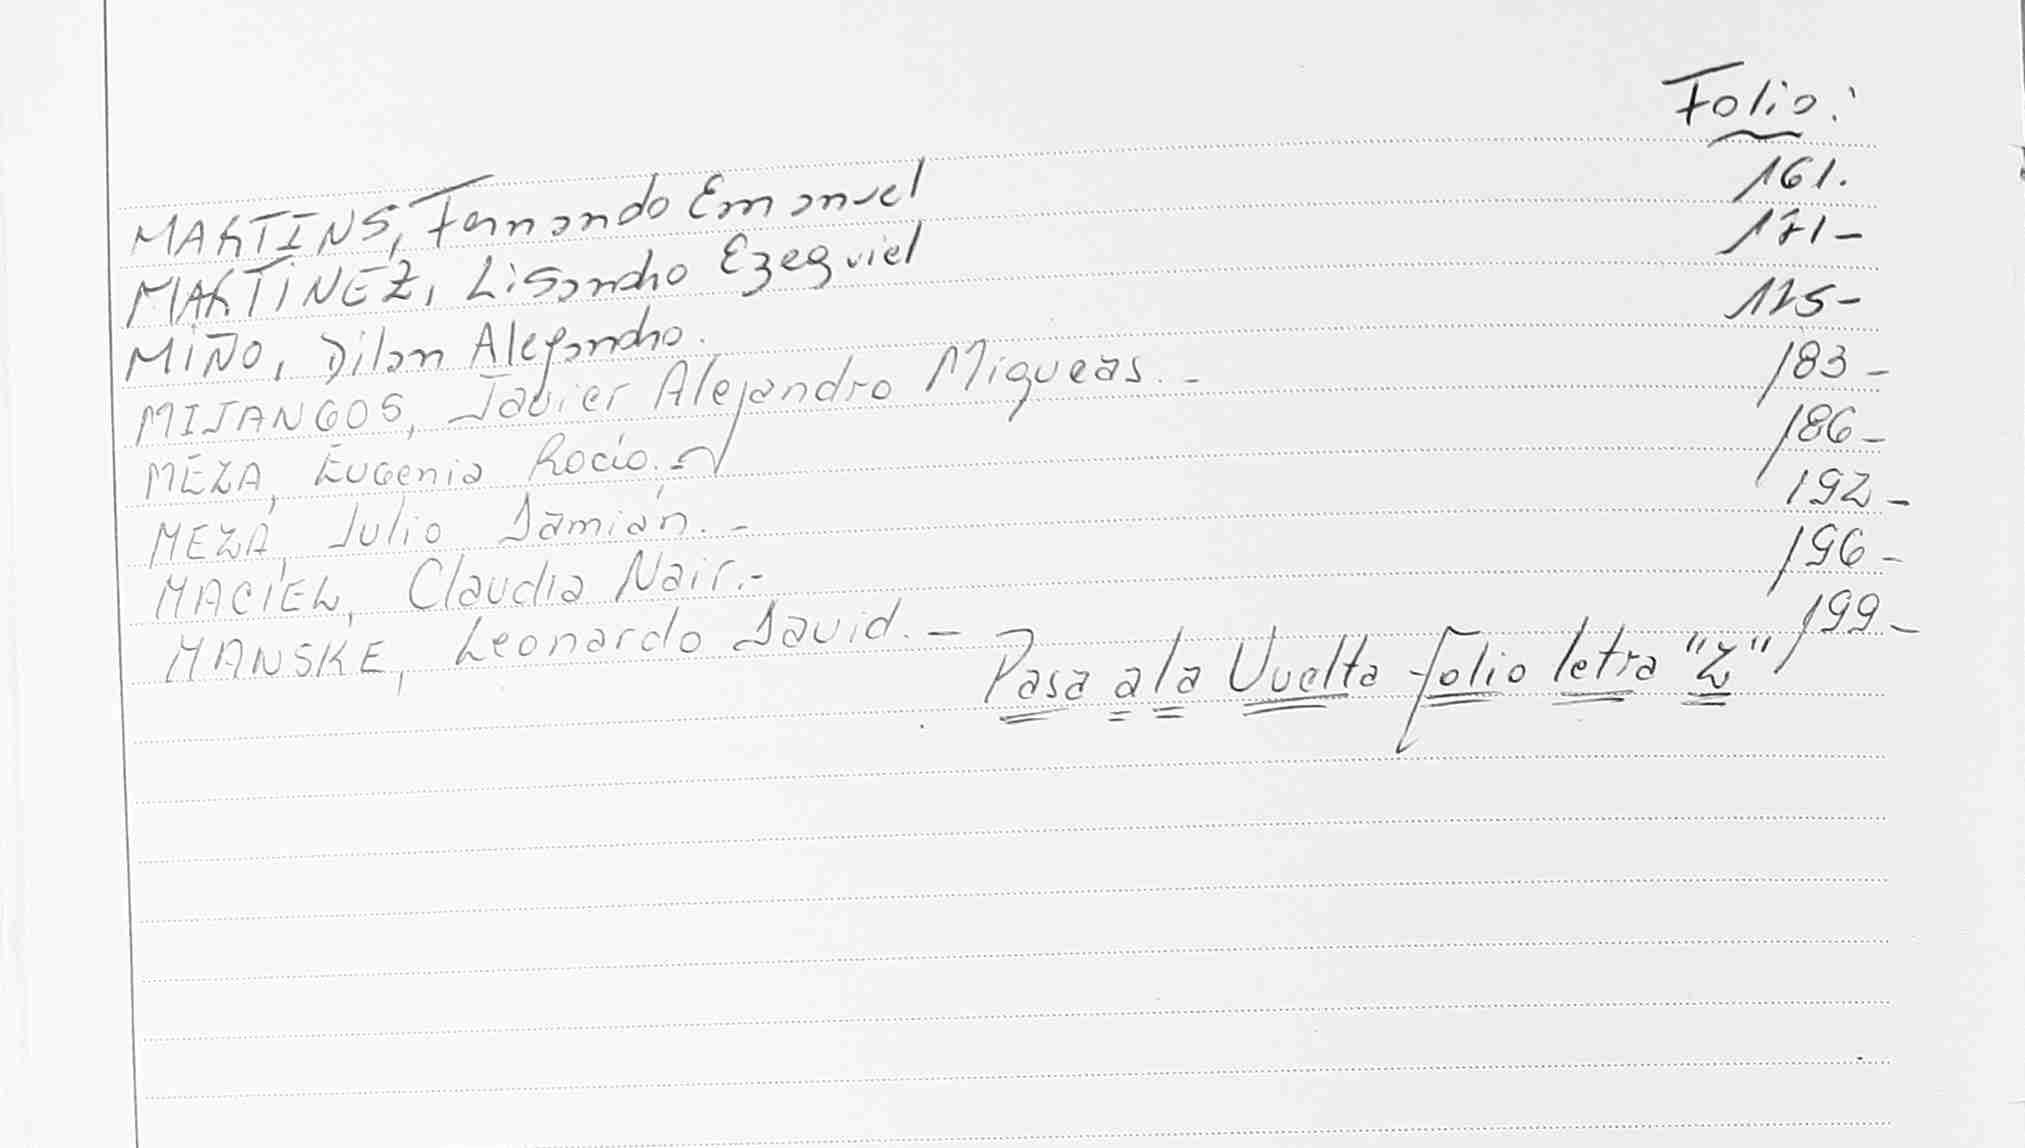 Folio:
MARTINS, Fernando Emanuel 161.
MARTINEZ, Lisandro Ezequiel 171-
MIÑO, Dilan Alejandro. 175-
MIJANGOS, Javier Alejandro Miqueas.- 183-
MEZA, Eugenia Rocío.- 186-
MEZA, Julio Damián.- 192-
MACIEL, Claudia Nair.- 196-
MANSKE, Leonardo David.- 199-
Pasa a la Vuelta folio letra "Z"